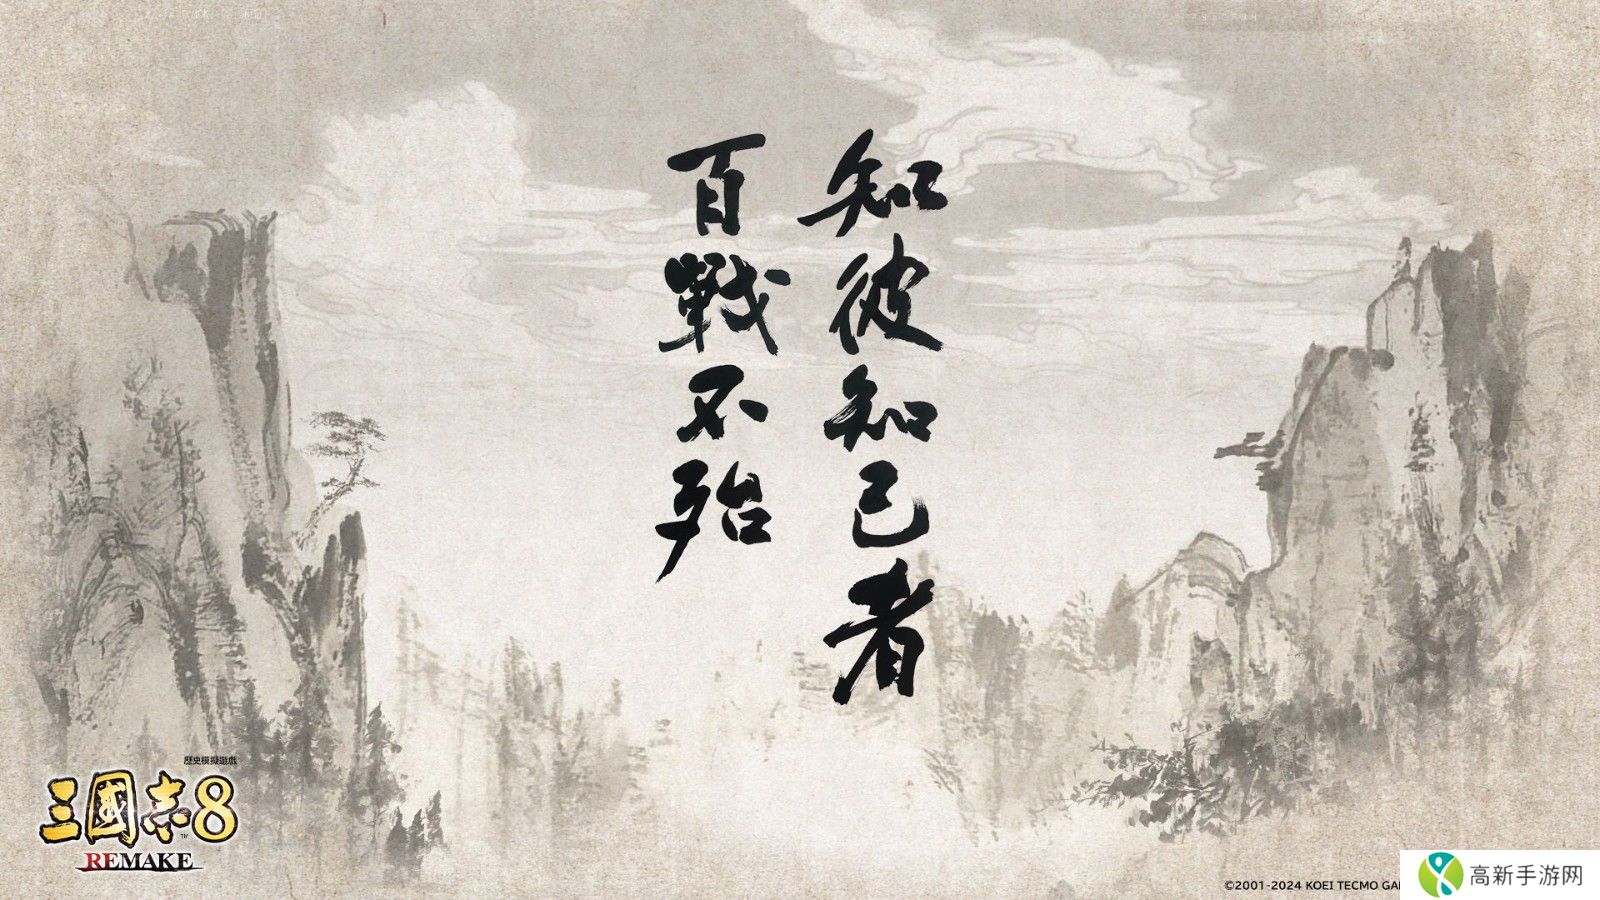 知彼知己者
百戰不殆
歷史模擬遊戲
三國志8
TM
REMAKE
©2001-2024 KOEI TECMO GA
高新手游网